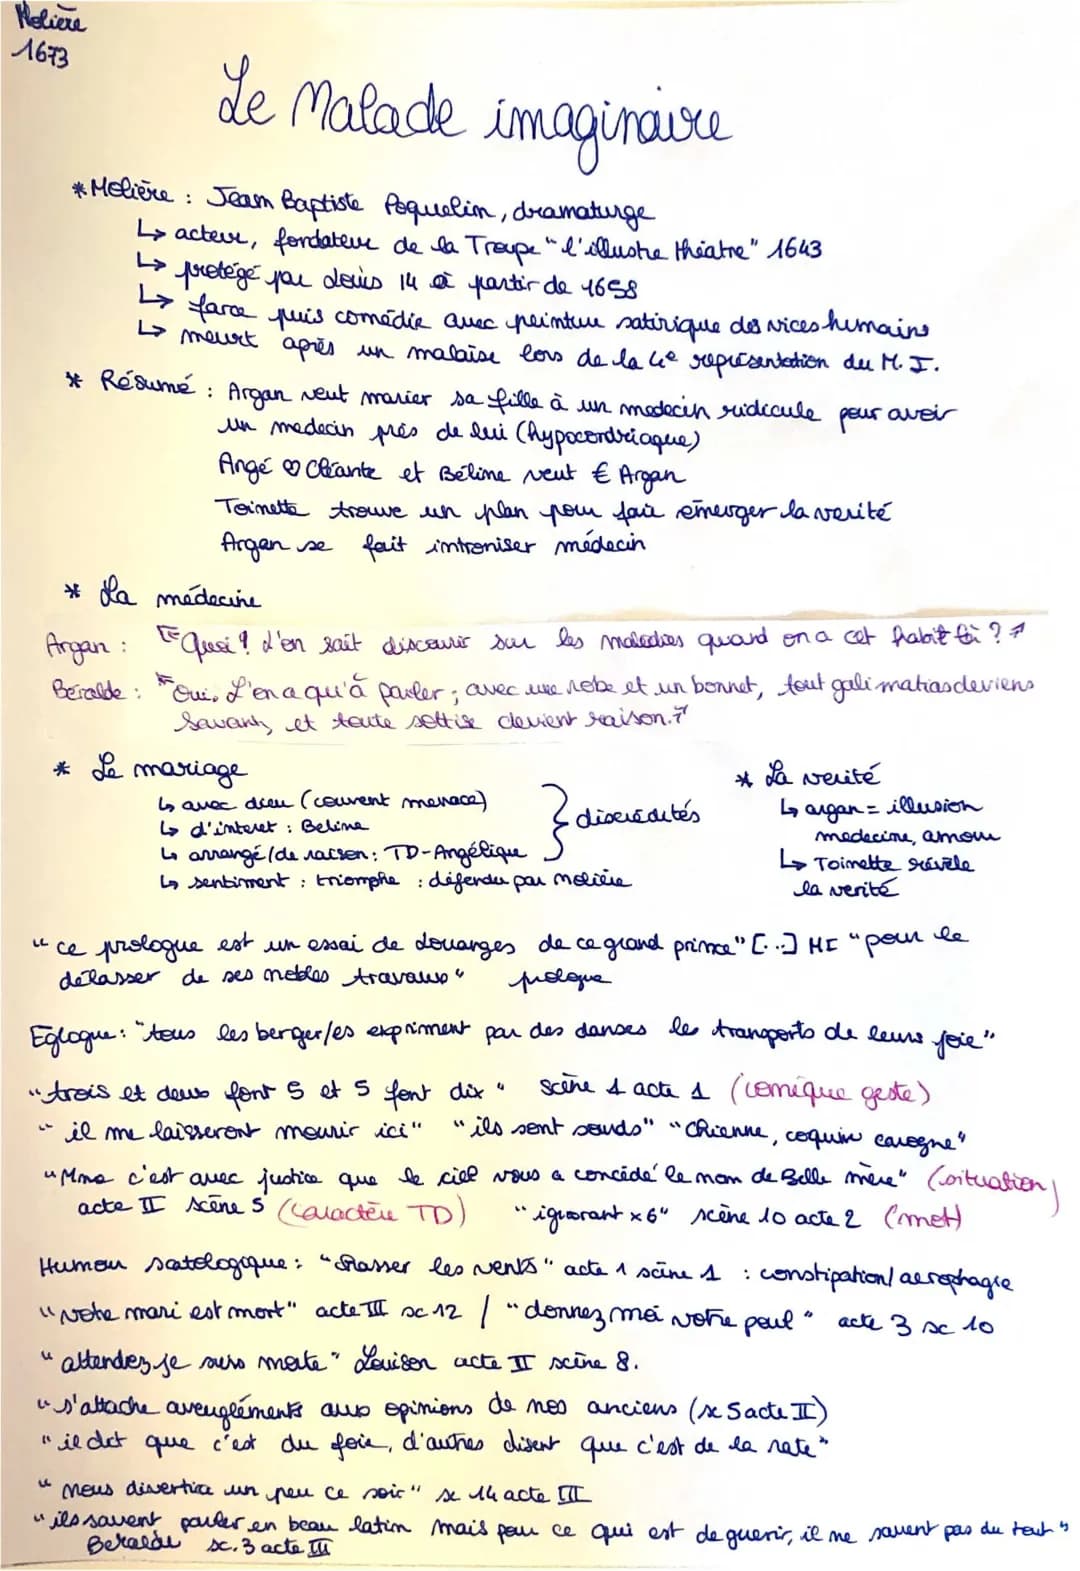 Molière
1673
Le Malade imaginaire
* Molière : Jean Baptiste Poquelin, dramaturge
↳ acteur, fondateur de la Troupe "l'illustre théatre" 1643
↳ protégé par Louis 14 à partir de 1658
↳ farce puis comédie avec peinture satirique des vices humains
↳ meurt après un malaise lors de la 4e représentation du M. I.
* Résumé : Argan veut marier sa fille à un medecin ridicule pour avoir
un medecin près de lui (hypocondriaque)
Angé ♡ Cléante et Béline veut € Argan
Toinette trouve un plan pour faire émerger la verité
Argan se fait introniser médecin
* La médecine
Argan : "Quoi ? L'on sait discourir sur les maladies quand on a cet habit là ?"
Béralde : "Oui, L'on a qu'à parler ; avec une robe et un bonnet, tout galimatias deviens
Savant, et toute sottise devient raison."
* Le mariage
↳ avec dieu (couvent menace)
↳ d'interet : Beline
↳ arrangé/de raison : TD-Angélique
} discrédités
↳ sentiment : triomphe : défendu par molière
* La verité
↳ argan = illusion
medecine, amour
↳ Toinette révèle
la verité
"ce prologue est un essai de Louanges de ce grand prince" [...] MI "pour le
délasser de ses nobles travaux" prologue
Eglogue : "tous les berger/es expriment par des danses les transports de leurs joie"
"trois et deux font 5 et 5 font dix" scène 1 acte 1 (comique geste)
"il me laisseront mourir ici" "ils sont sourds" "Chienne, coquine carogne"
"Mme c'est avec justice que le ciel vous a concédé le nom de Belle mère" (situation)
acte II scène 5 (caractère TD) "ignorant x6" scène 10 acte 2 (mot)
Humour scatologique : "chasser les vents" acte 1 scène 1 : constipation/aerophagie
"votre mari est mort" acte III sc 12 / "donnez moi votre poul" acte 3 sc 10
"attendez je suis morte" Louison acte II scène 8.
"s'attache aveugléments aux opinions de nos anciens (sc 5 acte II)
"il dit que c'est du foie, d'autres disent que c'est de la rate"
"nous divertire un peu ce soir" sc 14 acte III
"ils savent parler en beau latin mais pour ce qui est de guerir, il ne savent pas du tout"
Beralde sc. 3 acte III